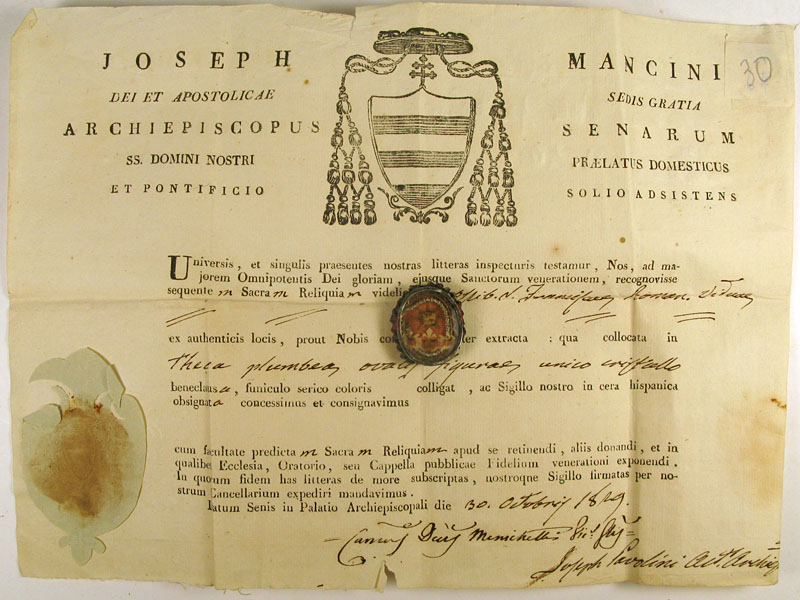 JOSEPH MANCINI
DEI ET APOSTOLICAE SEDIS GRATIA
ARCHIEPISCOPUS SENARUM
SS. DOMINI NOSTRI PRÆLATUS DOMESTICUS
ET PONTIFICIO SOLIO ADSISTENS
30
Universis, et singulis praesentes nostras litteras inspecturis testamur, Nos, ad ma-
jorem Omnipotentis Dei gloriam, ejusque Sanctorum venerationem, recognovisse
sequentem Sacram Reliquiam S. Franciscae Roman. Viduae
ex authenticis locis, prout Nobis extracta: qua collocata in
theca plumbea ovalis figurae unico cristallo
beneclausa, funiculo serico coloris colligat, ac Sigillo nostro in cera hispanica
obsignata concessimus et consignavimus
cum facultate predictam Sacram Reliquiam apud se retinendi, aliis donandi, et in
qualibet Ecclesia, Oratorio, seu Cappella pubblicae Fidelium venerationi exponendi.
In quorum fidem has litteras de more subscriptas, nostroque Sigillo firmatas per no-
strum Cancellarium expediri mandavimus.
Datum Senis in Palatio Archiepiscopali die 30. Octobris 1819.
Joseph